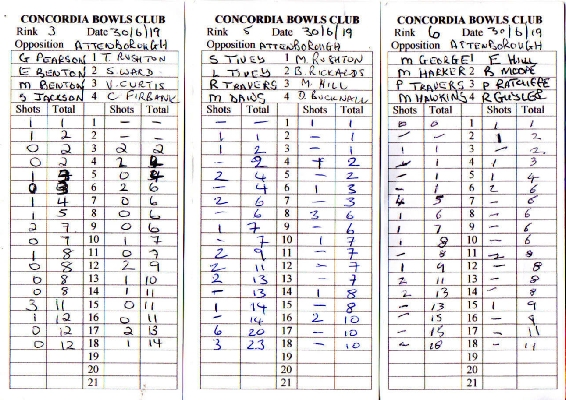 CONCORDIA BOWLS CLUB
Rink 3 Date 30/6/19
Opposition ATTENBOROUGH
G PEARSON 1 T. RUSHTON
E BENTON 2 S WARD
M BENTON 3 V. CURTIS
S JACKSON 4 C FIRBANK
Shots Total Shots Total
1 1 1 - -
1 2 2 - -
0 2 3 2 2
0 2 4 2
1 5 0
0 6 2 6
1 4 7 0 6
1 5 8 0 6
2 7 9 0 6
0 7 10 1 7
1 8 11 0 7
0 8 12 2 9
0 8 13 1 10
0 8 14 1 11
3 11 15 0 11
1 12 16 0 11
0 12 17 2 13
0 12 18 1 14
19
20
21
CONCORDIA BOWLS CLUB
Rink 5 Date 30/6/19
Opposition ATTENBOROUGH
S TIVEY 1 M. RUSHTON
L TIVEY 2 B. RICKARDS
R TRAVERS 3 M. HILL
M DAINS 4 D. BUCKNALL
Shots Total Shots Total
- - 1 1 1
1 1 2 - 1
1 2 3 - 1
- 2 4 1 2
2 4 5 - 2
- 4 6 1 3
2 6 7 - 3
- 6 8 3 6
1 7 9 - 6
- 7 10 1 7
2 9 11 - 7
2 11 12 - 7
2 13 13 - 7
- 13 14 1 8
1 14 15 - 8
- 14 16 2 10
6 20 17 - 10
3 23 18 - 10
19
20
21
CONCORDIA BOWLS CLUB
Rink 6 Date 30/6/19
Opposition ATTENBOROUGH
M GEORGE 1 E HILL
M HARKER 2 B
P TRAVERS 3 P RATCLIFFE
M HAWKINS 4 R
Shots Total Shots Total
0 0 1 1 1
- - 2 1 2
- - 3 - 2
1 1 4 1 3
- 1 5 1 4
- 1 6 2 6
4 5 7 - 6
1 6 8 - 6
1 7 9 - 6
1 8 10 - 6
- 8 11 2 8
1 9 12 - 8
2 11 13 - 8
2 13 14 - 8
- 13 15 1 9
15 16 - 9
- 15 17 - 11
18 18 - 11
19
20
21